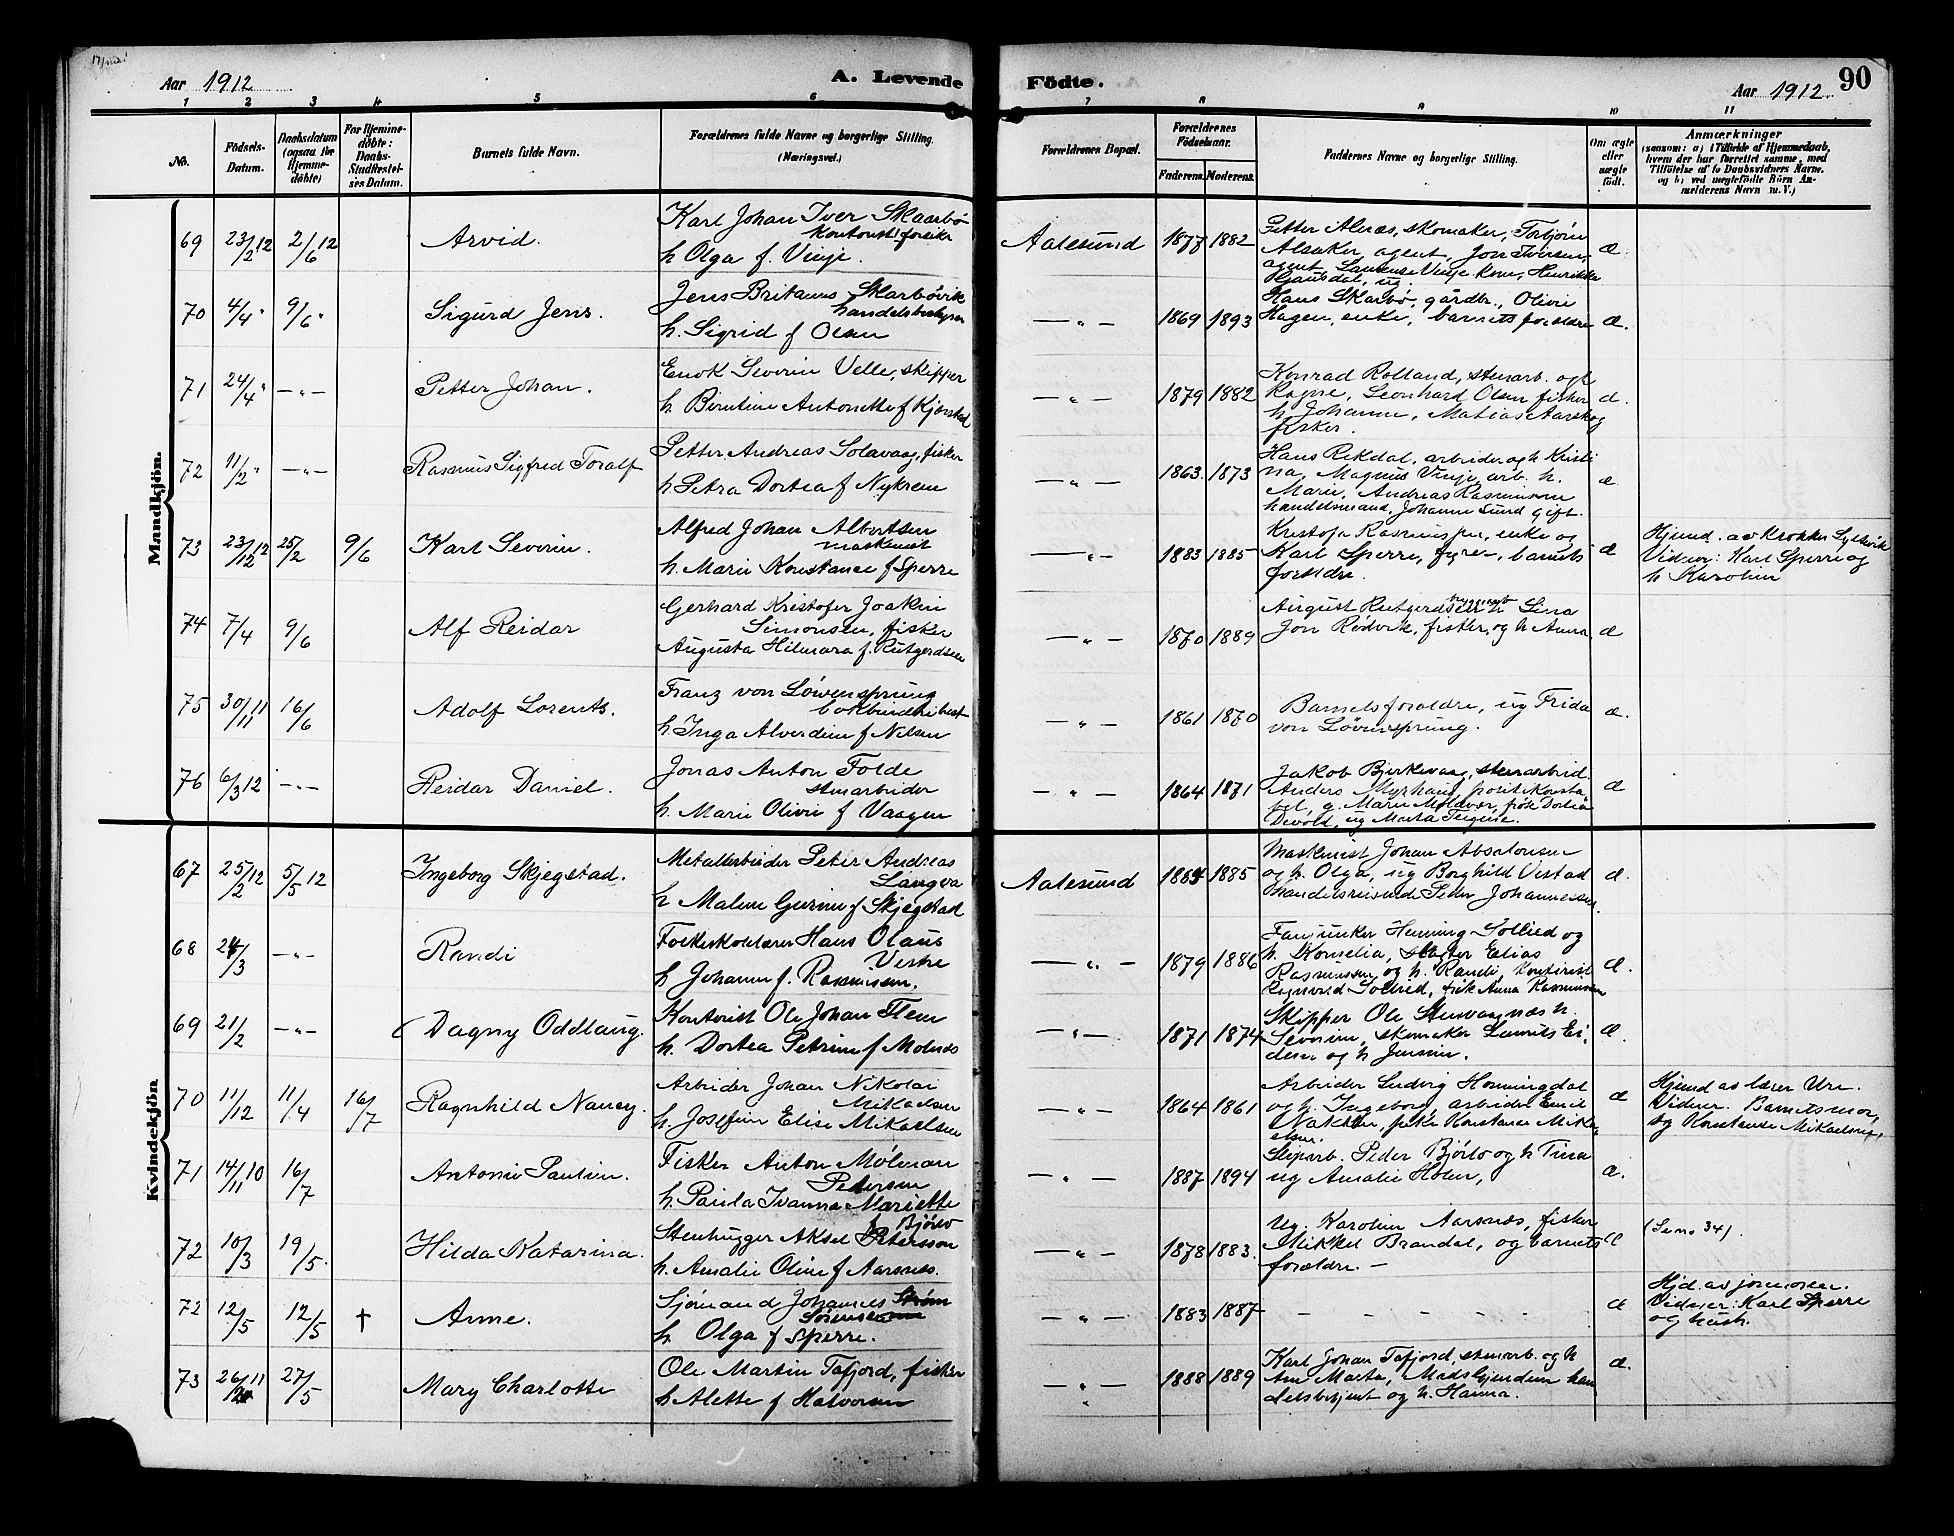 17/mai
Aar 1912
A. Levende
Födte.
Aar 1912
90
1 2 3 4 5 6 7 8 9 10 11
No.
Födsels-
Datum.
Daabsdatum
(ogsaa for
Hjemme-
döbte)
For Hjemme-
döbte:
Daabs-
Stadfæstel-
ses Datum.
Barnets fulde Navn.
Forældrenes fulde Navne og borgerlige Stilling.
(Næringsvei.)
Forældrenes Bopæl.
Forældrenes
Födselsaar.
Faderens. Moderens.
Faddernes Navne og borgerlige Stilling.
Om ægte
eller
uægte
födt.
Anmærkninger
(saasom: a) i Tilfælde af Hjemmedaab,
hvem der har forrettet samme, med
Tilföielse af to Daabsvidners Navne,
og b) ved uægtefödte Börn An-
melderens Navn m. V.)
Mandkjön.
69 23/2 12 2/6 12 Arvid.
Karl Johan Iver Skaarbö
h Olga f. Vinje.
Aalesund 1877 1882
Petter Alnæs, skomaker, Torbjörn
Alsaker agent, Jon Iversen,
agent, Laurense Vinje kone, Henrikke
æ.
70 4/4 " 9/6 " Sigurd Jens.
Jens Britanus Skarbövik
handelsbestyrer
h. Sigrid f Olsen
— " — 1869 1893
Hans Skarbö, gårdbr., Olivie
Hagen, enke, barnets foreldre
æ.
71 24/4 " — " — Petter Johan.
Enok Severin Velle, skipper
h. Berntine Antonette f Kjørstad
— " — 1879 1882
Konrad Rolland, stenarb. og h
Ragne, Leonhard Olsen fisker
h Johanne, Matias Aarskog
fisker.
æ.
72 11/2 " — " — Rasmus Sigfred Toralf
Petter Andreas Solavaag, fisker
h Petra Dortea f Nykrem
— " — 1863. 1873
Hans Rekdal, arbeider og h Kristi
na, Magnus Vinje, arb. h.
Marie, Andreas Rasmussen
handelsmand, Johanne Sund gift.
æ
73 23/12 12 25/2 9/6 Karl Severin.
Alfred Johan Albertsen
maskinist
h. Marie Konstance f Sperre
— " — 1883 1885
Kristofa Rasmussen, enke og
Karl Sperre, fyrb., barnets
foreldre.
æ
Hjemd. av klokker Sylte
Vidner: Karl Sperre og
h Karoline
74 7/4 9/6 Alf Reidar
Gerhard Kristofer Joakim
Simonsen, fisker
Augusta Hilmara f. Rutgerdsen
— " — 1870 1889
August Rutgerdsen h Lina
Jon Rødvik, fisker, og h Anna
æ
75 30/11 11 16/6 Adolf Lorents.
Franz von Löwensprung
h Inga Alverdine f Nilsen
— " — 1861 1870
Barnets foreldre, ug Frida
von Lövensprung.
æ.
76 6/3 12 — " — Reidar Daniel.
Jonas Anton Folde
stenarbeider
h. Marie Olivie f Vaagen
— " — 1864 1871
Jakob Bjerkevaag, stenarbeid.
Anders Myrhaug, politikonsta
bel, g. Marie Moldver, frk Dortea
Devold, ug Marta Teigene.
æ
Kvindekjön
67 25/2 12 5/5 12 Ingeborg Skjegstad.
Metalarbeider Peter Andreas
Langva
h Malene Gurine f Skjegstad
Aalesund 1884 1885
Maskinist Johan Absalonsen
og h. Olga, ug Borghild Vestad
Handelsreisende Peder Johannessen.
æ.
68 24/3 — " — Randi
Folkeskolelærer Hans Olaus
Vestre
h Johanne f. Rasmussen.
— " — 1879 1886
Fanejunker Henning Sollied og
h. Kornelia, skipper Elias
Rasmussen og h. Randi, Kontorist
Ragnvald Sollied, frk Anna Rasmussen
æ.
69 21/2 — " — Dagny Oddlaug
Kontorist Ole Johan Flem
h. Dortea Petrine f Molnes
— " — 1871 1874
Skipper Ole Stensvagnæs h.
Severine, skomaker Laurits Ei-
desen og h Jensine.
æ.
70 11/12 11/4 16/7 Ragnhild Nancy.
Arbeider Johan Nikolai
Mikaelsen
h. Josefine Elise Mikaelsen
— " — 1864 1861
Arbeider Ludvig Honningdal
og h. Ingeborg, arbeider Emil
Nakken, frk Konstanse Mikal
elsen.
æ
Hjemd av lærer Ure.
Vidner. Barnets mor,
og Konstanse Mikaelsen
71 14/11 10 16/7 Antonie Pauline.
Fisker Anton Mölman
Petersen
h. Paula Ivanna Mariette
f Bjørlo
— " — 1887 1894
Sliparb. Peder Bjørlo og h Tina
ug Amalie Holm,
æ.
72 10/3 19/5. Hilda Katarina.
Stenhugger Aksel Petersson
h. Amalie Oline f Aarsnes.
— " — 1878 1883.
Ug. Karoline Aarsnes, fisker
Mikkel Brandal, og barnets
forældre. —
æ
(Se no 34).
72 12/5 12/5 † Anne.
Sjømand Johannes Strøm
Sørensen
h. Olga f Sperre.
— " — 1883 1887
— — — — —
æ
Hjd. av jormoren.
Vidner: Karl Sperre
og hush.
73 26/11 27/5 Mary Charlotte
Ole Martin Tafjord, fisker
h Alette f Halvorsen
— " — 1888 1889
Karl Johan Tafjord, stenarb. og h
Ane Marta, Mads Gjendem han
delsbetjent og h. Hanna.
æ.